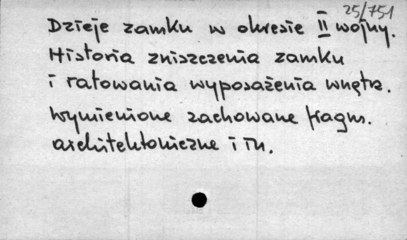 25/751
Dzieje zamku w okresie II wojny.
Historia zniszczenia zamku
i ratowania wyposażenia wnętrz.
Wymienione zachowane fragm.
architektoniczne i in.